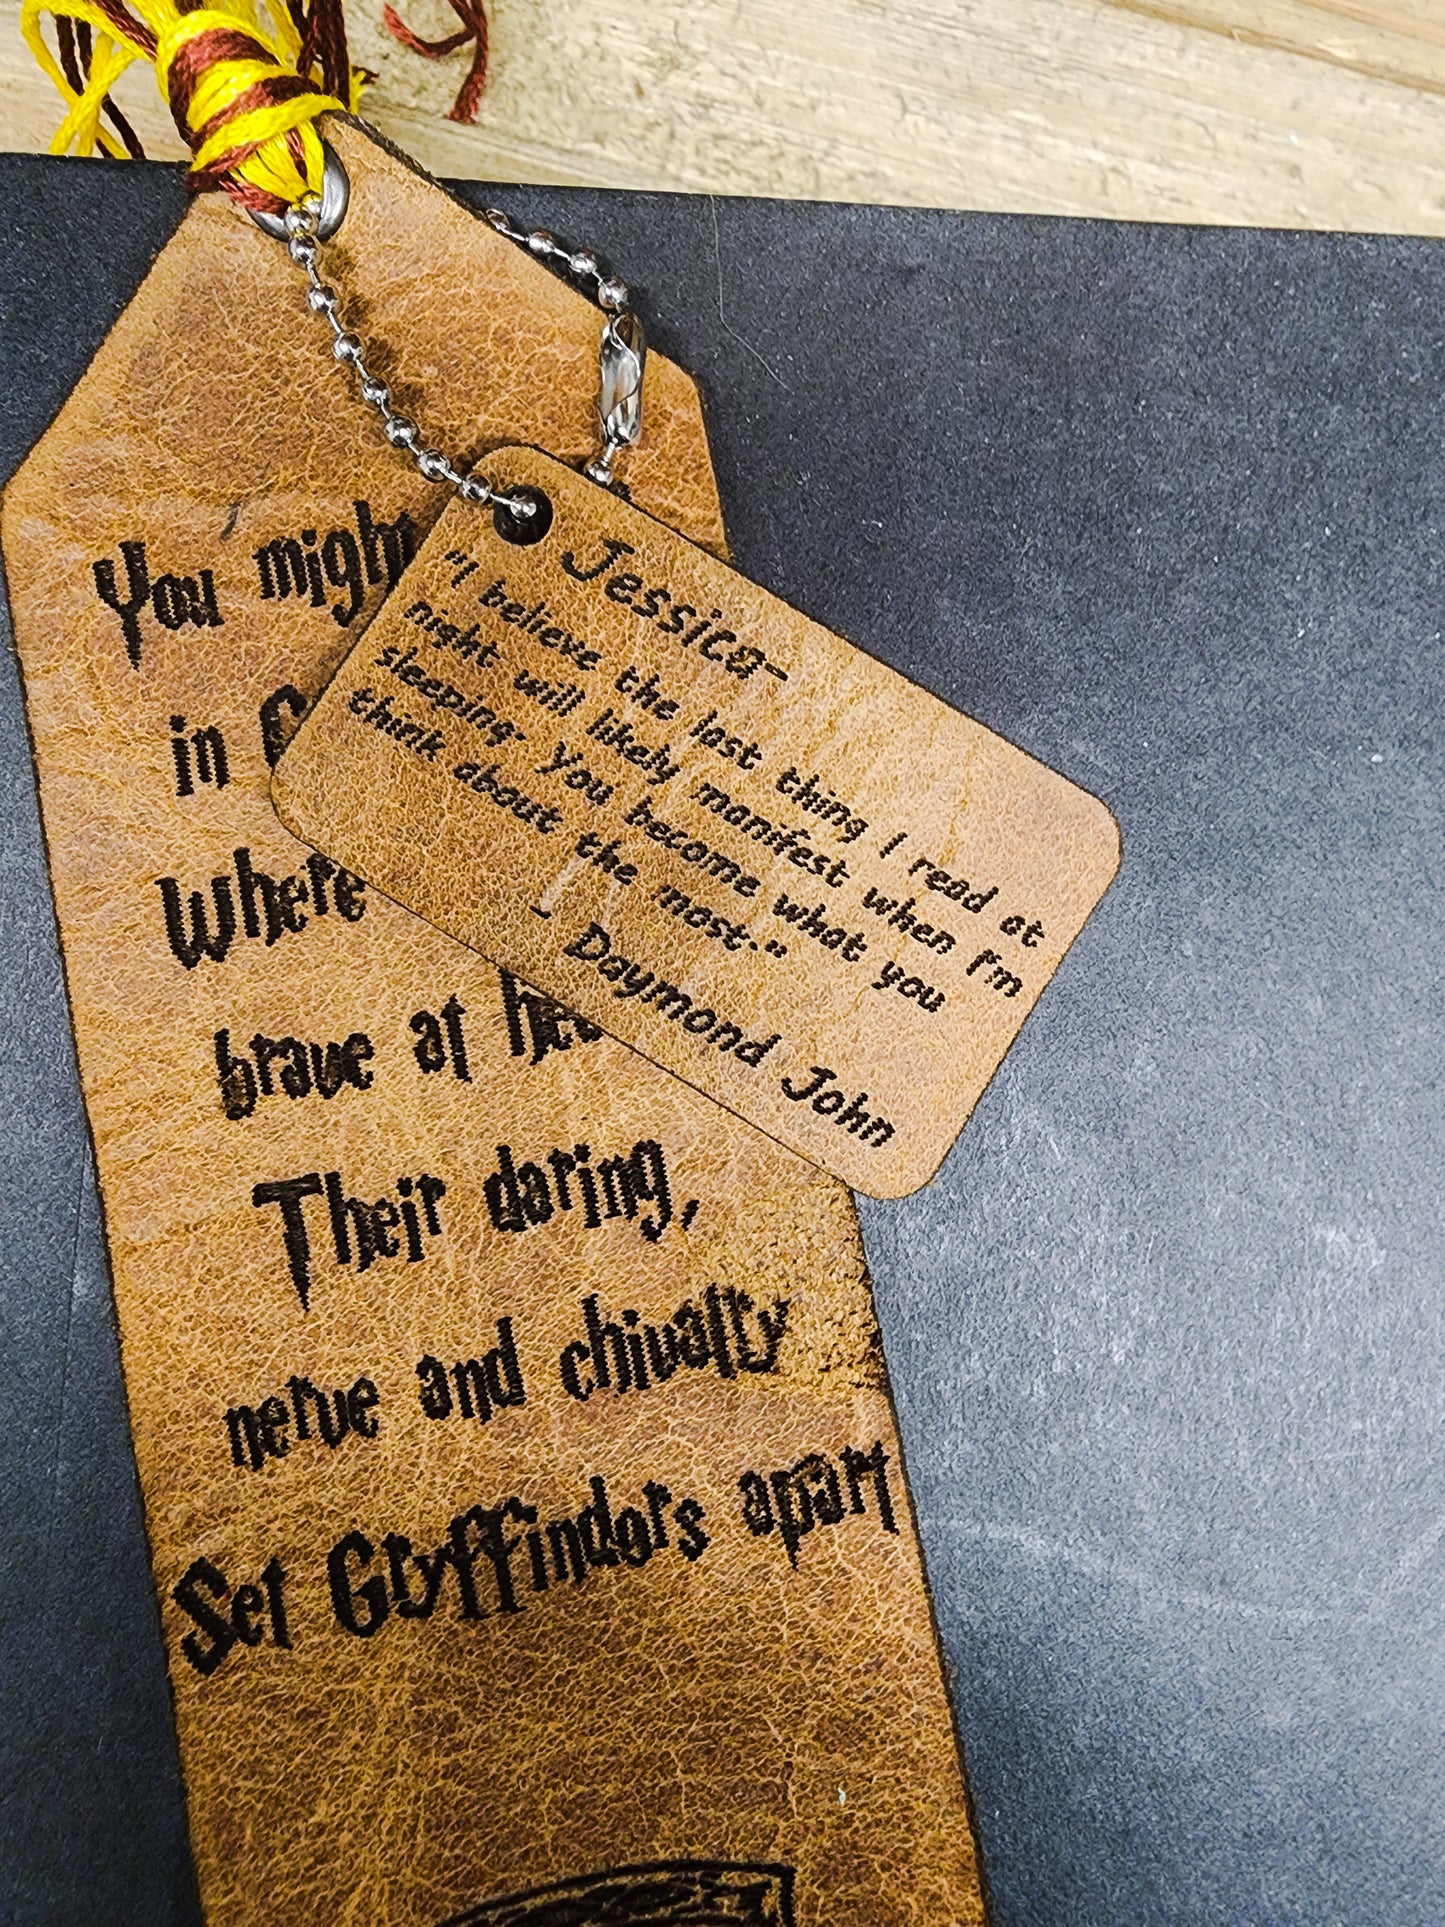 Jessica-
"I believe the last thing I read at
night will likely manifest when I'm
sleeping. You become what you
think about the most."
- Daymond John
You might
in
Where
brave at
Their daring,
nerve and chivalry
Set Gryffindors apart